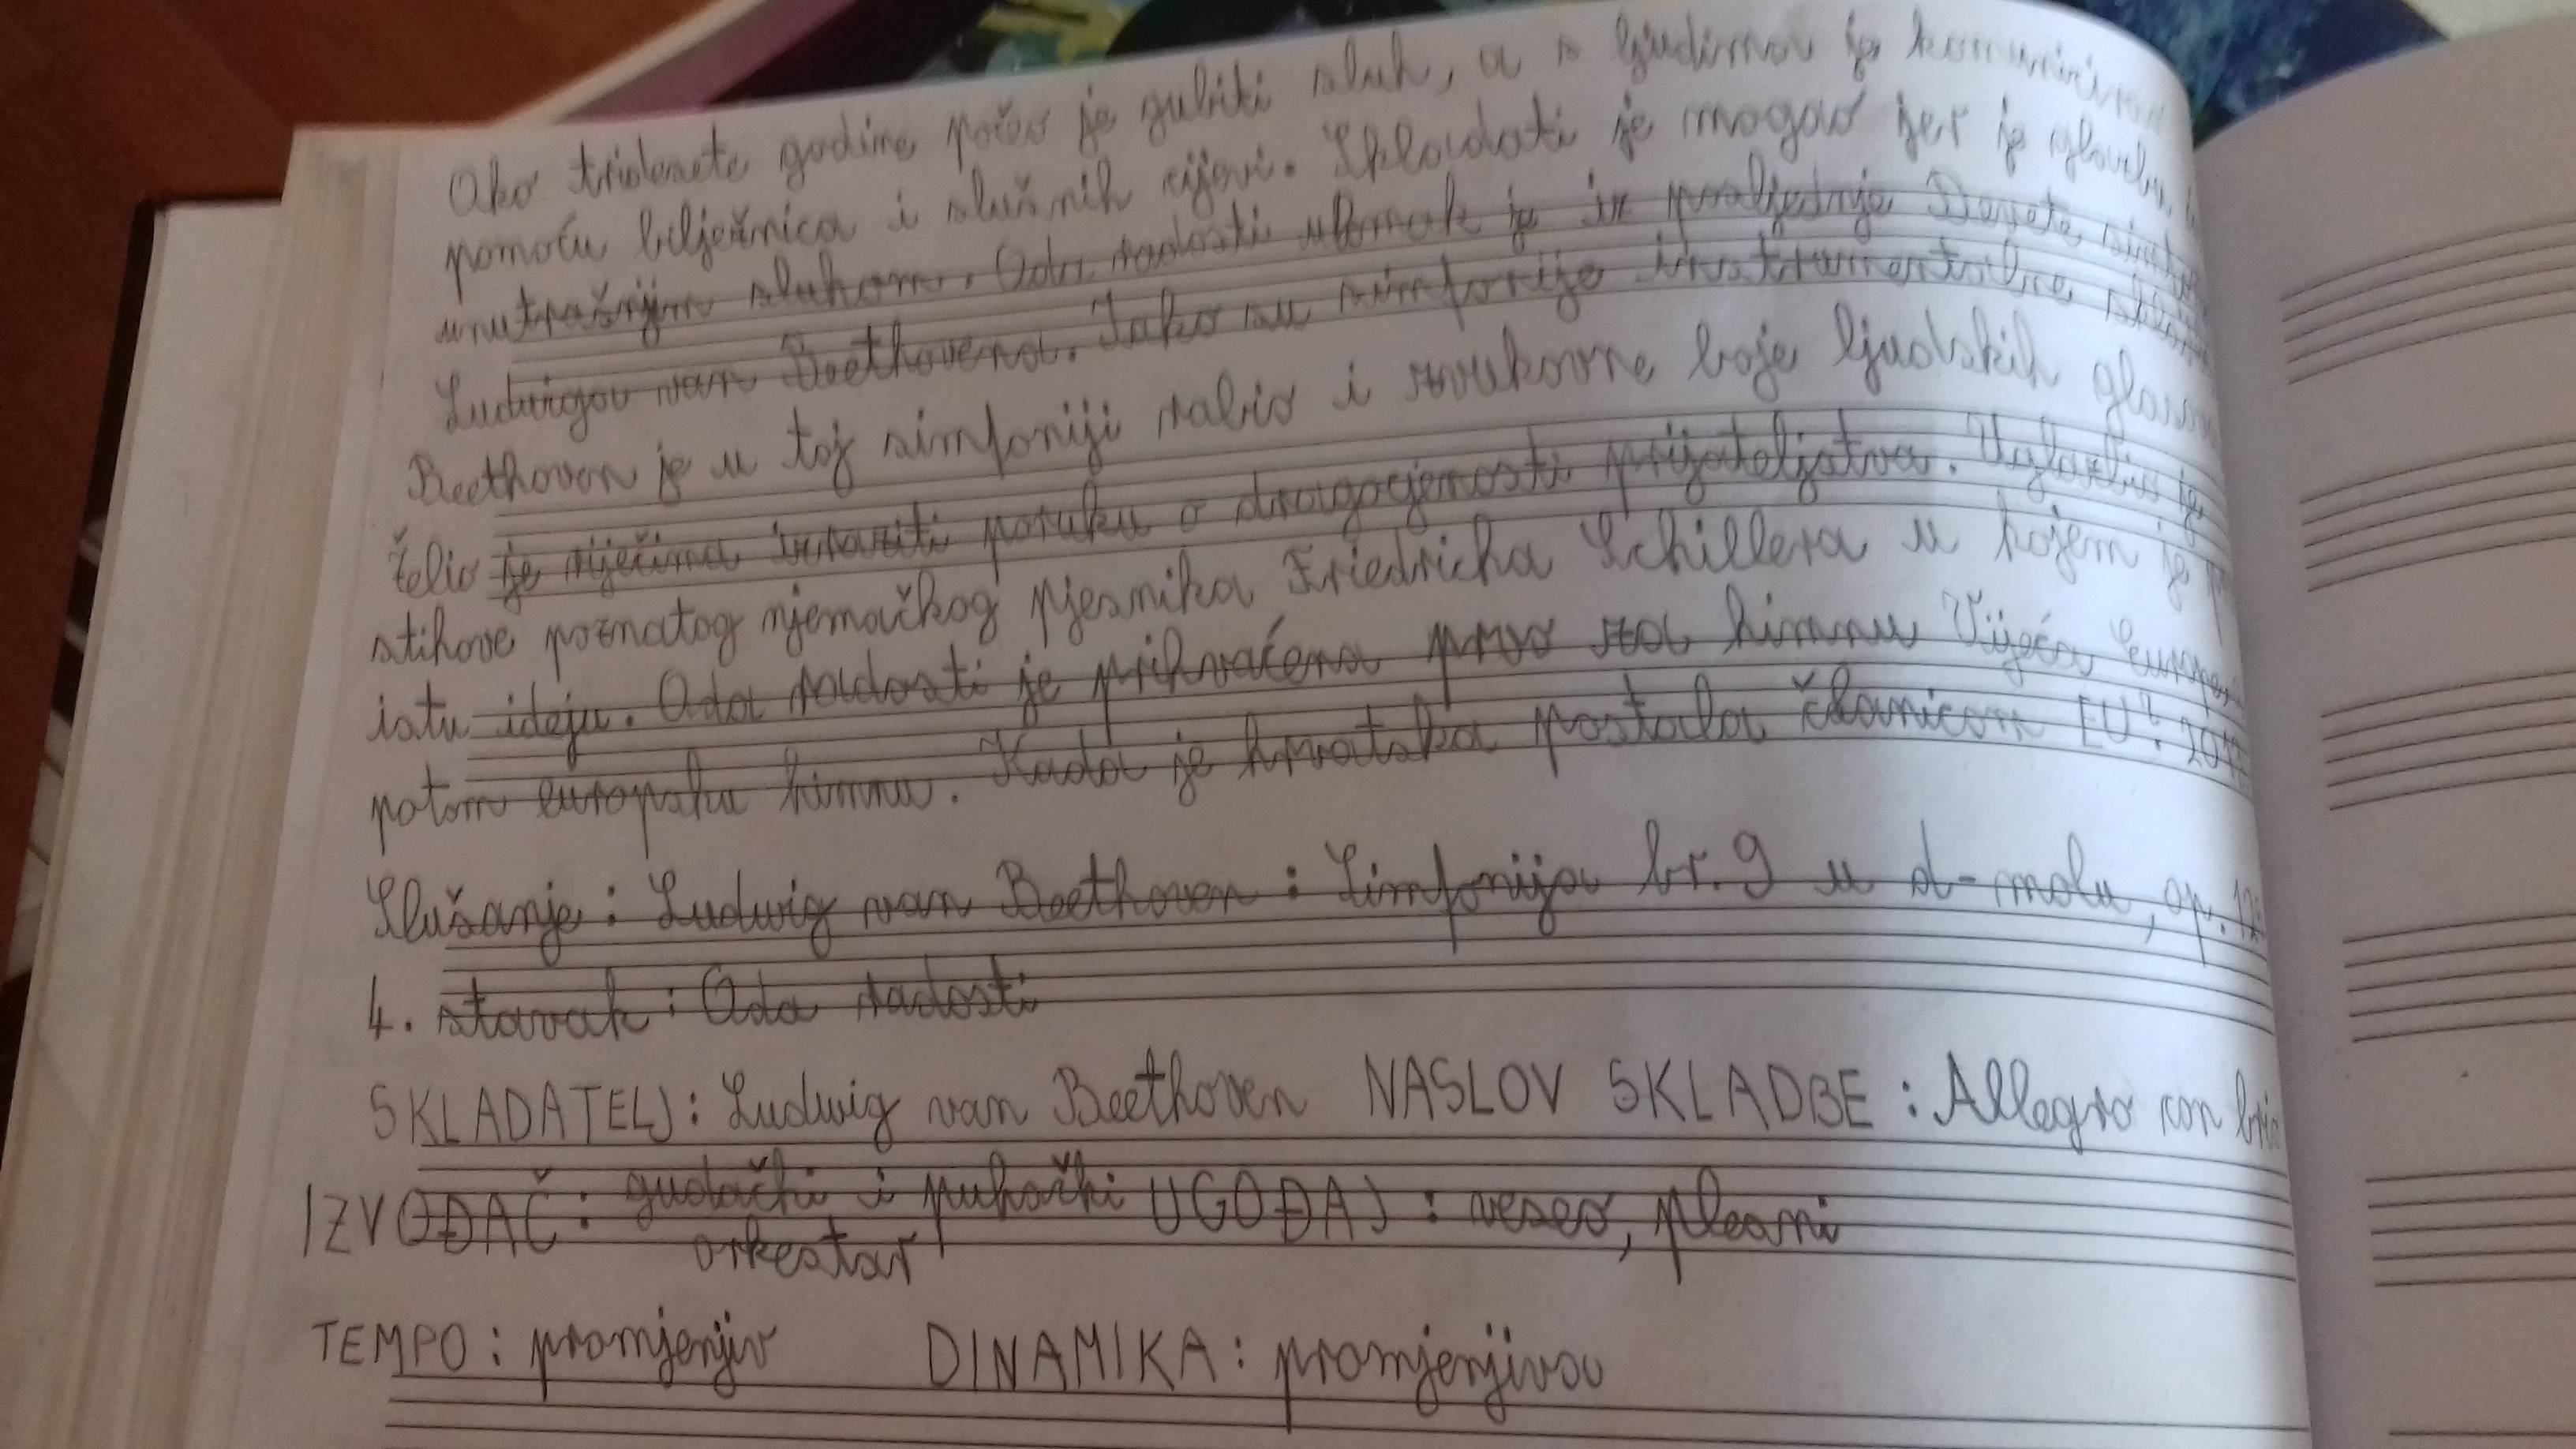 Oko tridesete godine počeo je gubiti sluh, a s ljudima je
pomoću bilježnica i slušnih cijevi. Skladati je mogao jer je
unutrašnjim sluhom. Oda radosti ulomak je iz posljednje Devete
Ludwiga van Beethovena. Iako su simfonije instrumentalne
Beethoven je u toj simfoniji rabio i zvukovne boje ljudskih
Želio je riječima izraziti poruku o dragocjenosti prijateljstva. Uglazbio je
stihove poznatog njemačkog pjesnika Friedricha Schillera u kojem je
istu ideju. Oda radosti je prihvaćena prvo za himnu Vijeća Europe,
potom europsku himnu. Kada je hrvatska postala članicom EU?
Slušanje: Ludwig van Beethoven: Simfonija br. 9 u d-molu, op.
4. stavak: Oda radosti
SKLADATELJ: Ludwig van Beethoven NASLOV SKLADBE: Allegro con
IZVOĐAČ: gudački i puhački UGOĐAJ: veseo, plesni
orkestar
TEMPO: promjenjiv DINAMIKA: promjenjiva